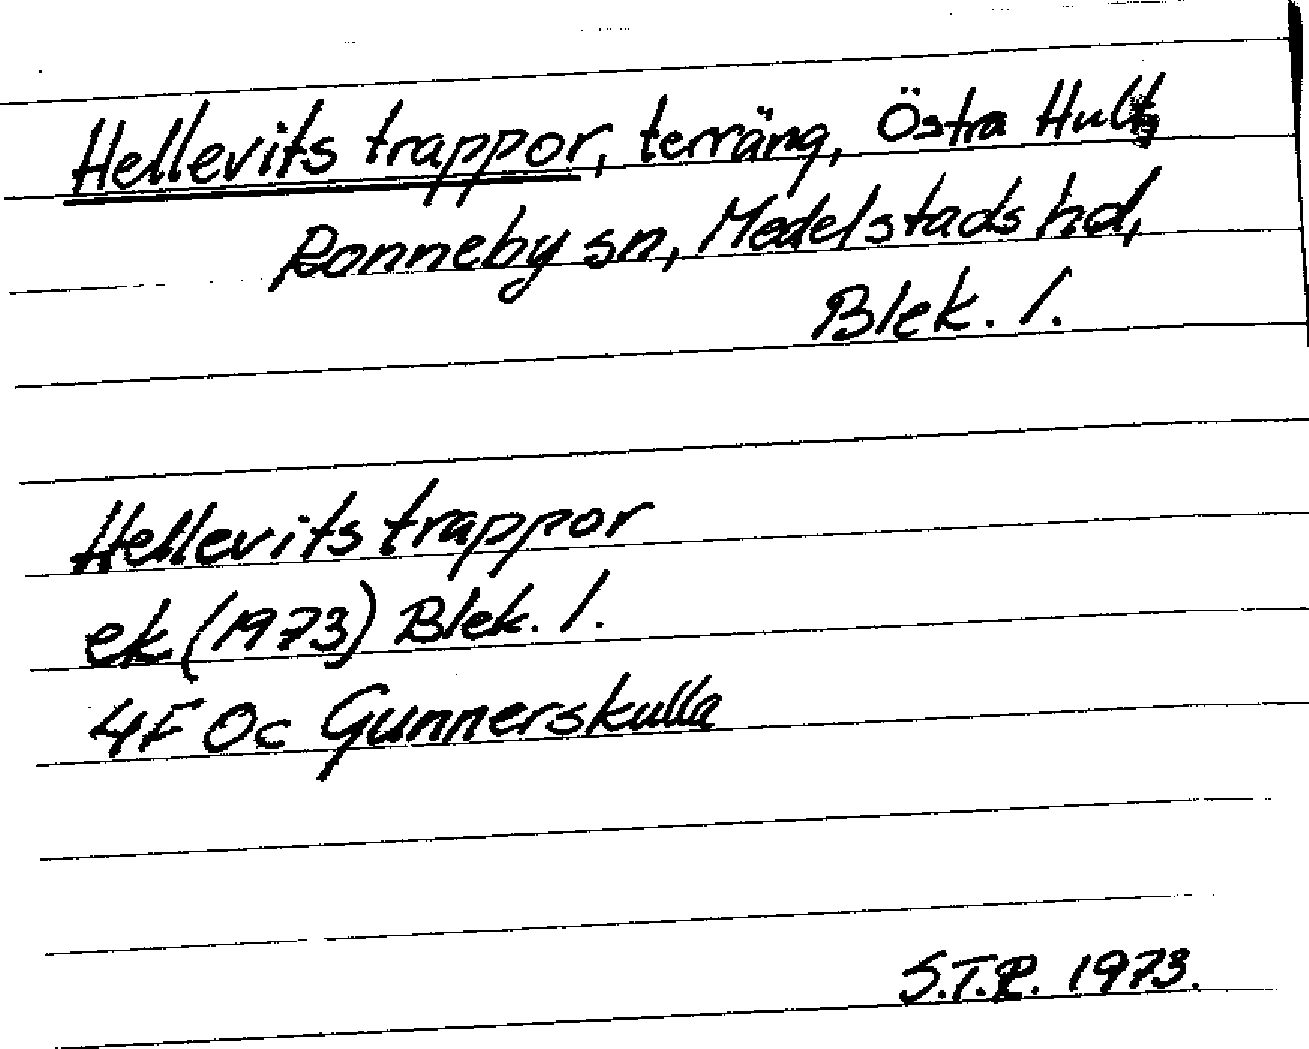 Hellevits trappor, terräng, Östra Hult,
Ronneby sn, Medelstads hd,
Blek. l.
Hellevits trappor
ek (1973) Blek. l.
4F Oc Gunnerskulla
S.T.R. 1973.